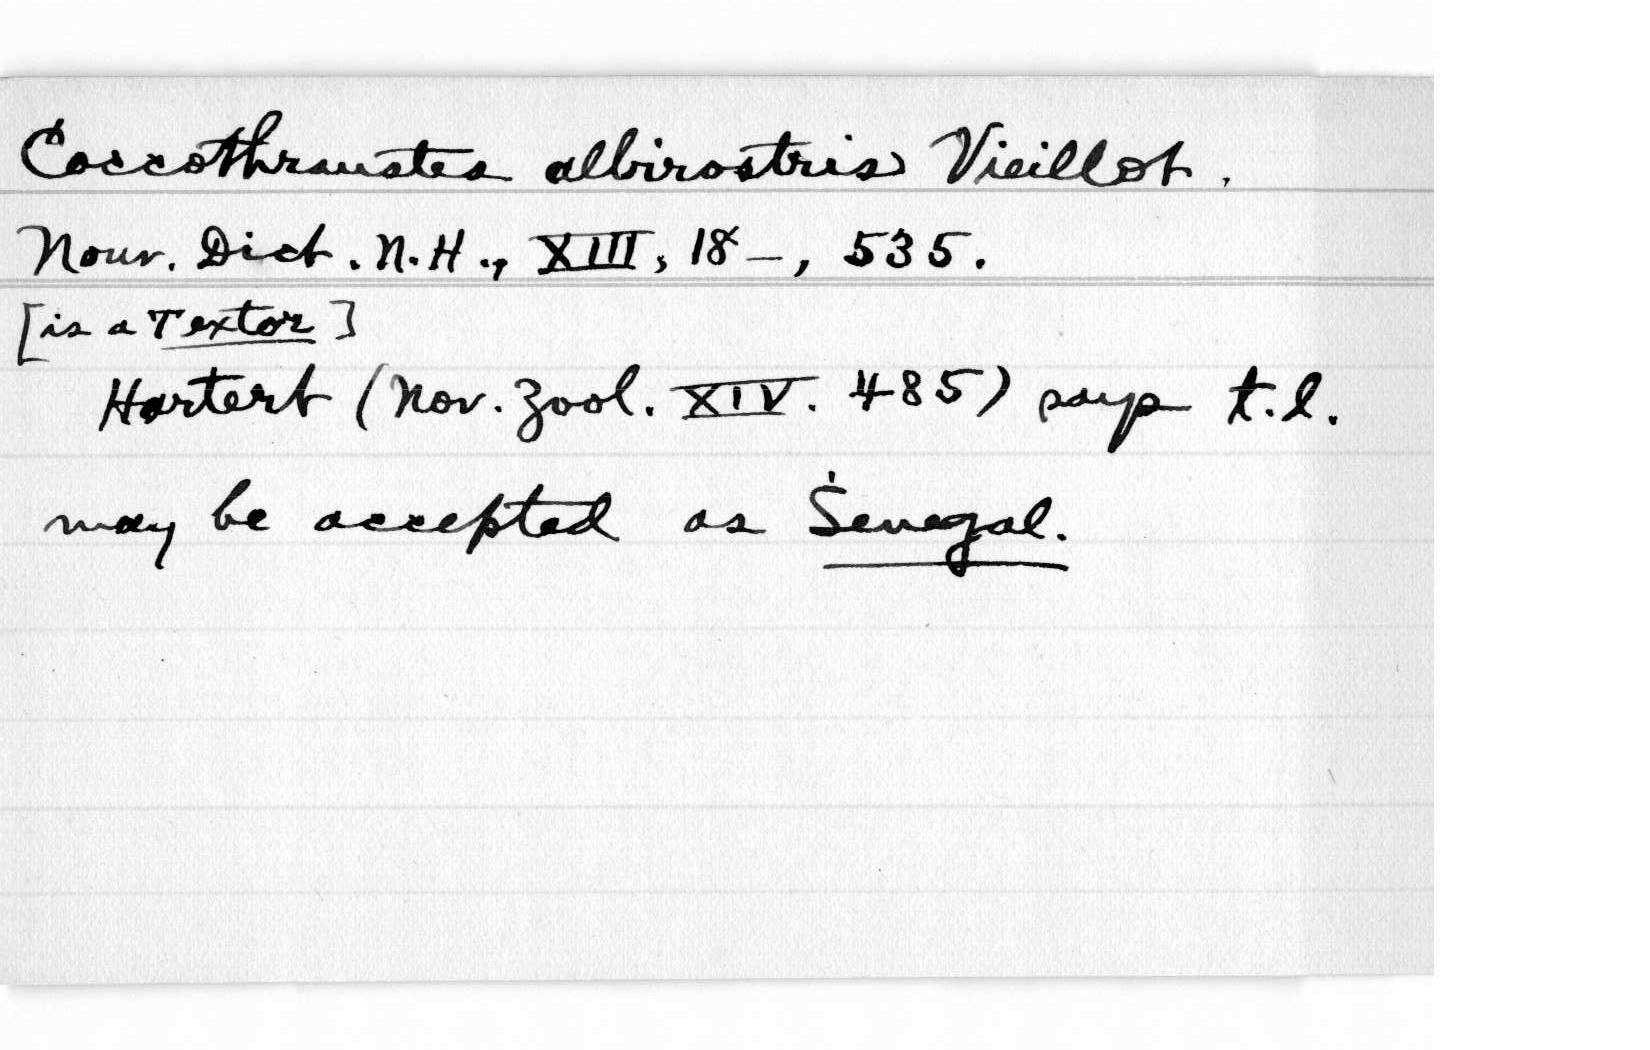 Coccothraustes albirostris Vieillot.
Nouv. Dict. N.H., XIII, 18—, 535.
[is a Textor]
Hartert (Nov. Zool. XIV. 485) says t.l.
may be accepted as Senegal.